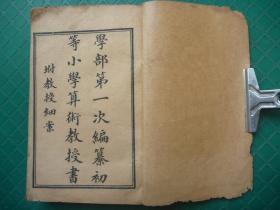 學部第一次編纂初
等小學算術教授書
坿教授細案